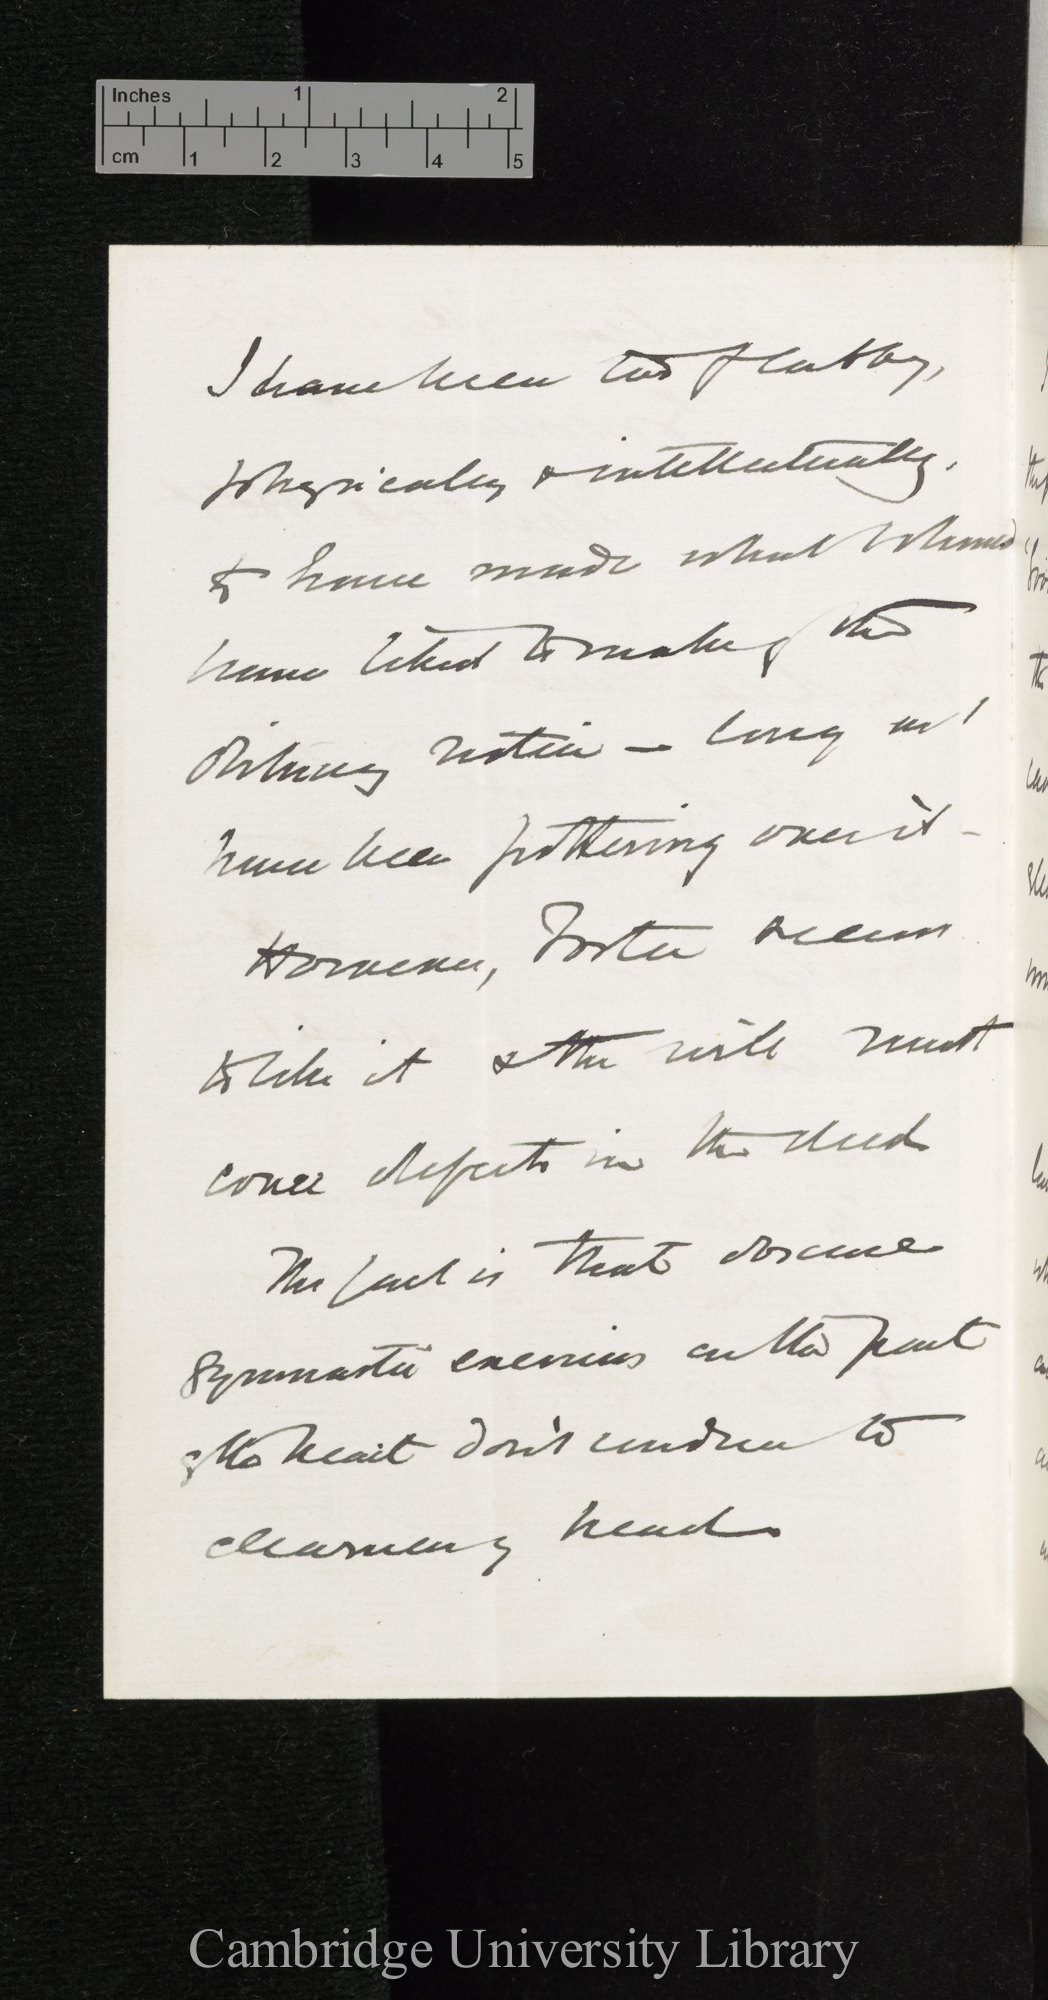 Inches 1 2
cm 1 2 3 4 5
I have been too flabby,
physically & intellectually,
to have made what I should
have liked to make of the
Obituary notice — long as I
have been pottering over it —
However, Foster seems
to like it & the will must
cover defects in the deed
The fact is that obscure
gymnastic exercises on the part
of the heart don't conduce to
clearness of head.
Cambridge University Library